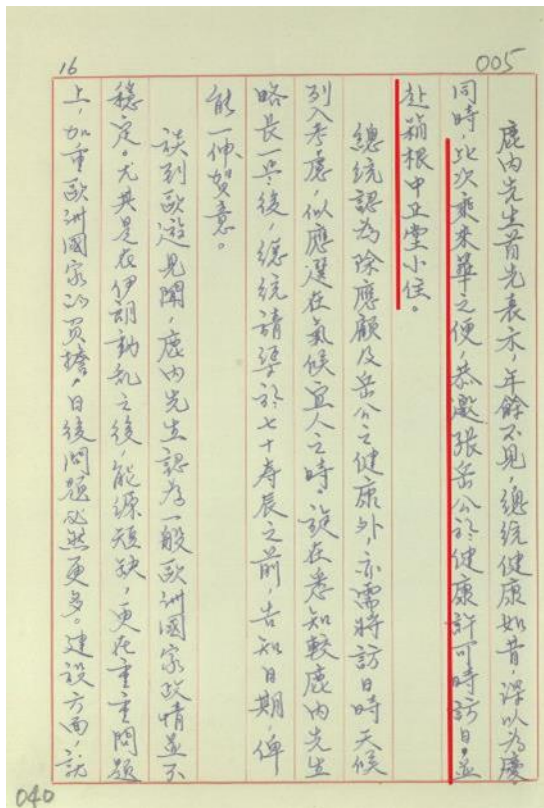 16
005
鹿內先生首先表示，年餘不見，總統健康如昔，深以為慶。
同時，此次乘來華之便，恭邀張岳公於健康許可時訪日，並
赴箱根中正堂小住。
總統認為除應顧及岳公之健康外，亦需將訪日時天候
列入考慮，似應選在氣候宜人之時。談在悉知較鹿內先生
略長一歲後，總統請渠於七十壽辰之前，告知日期，俾
能一伸賀意。
談到歐遊見聞，鹿內先生認為一般歐洲國家政情並不
穩定。尤其是在伊朗動亂之後，能源短缺，更在重重問題
上，加重歐洲國家的負擔，日後問題必然更多。建設方面，就
040